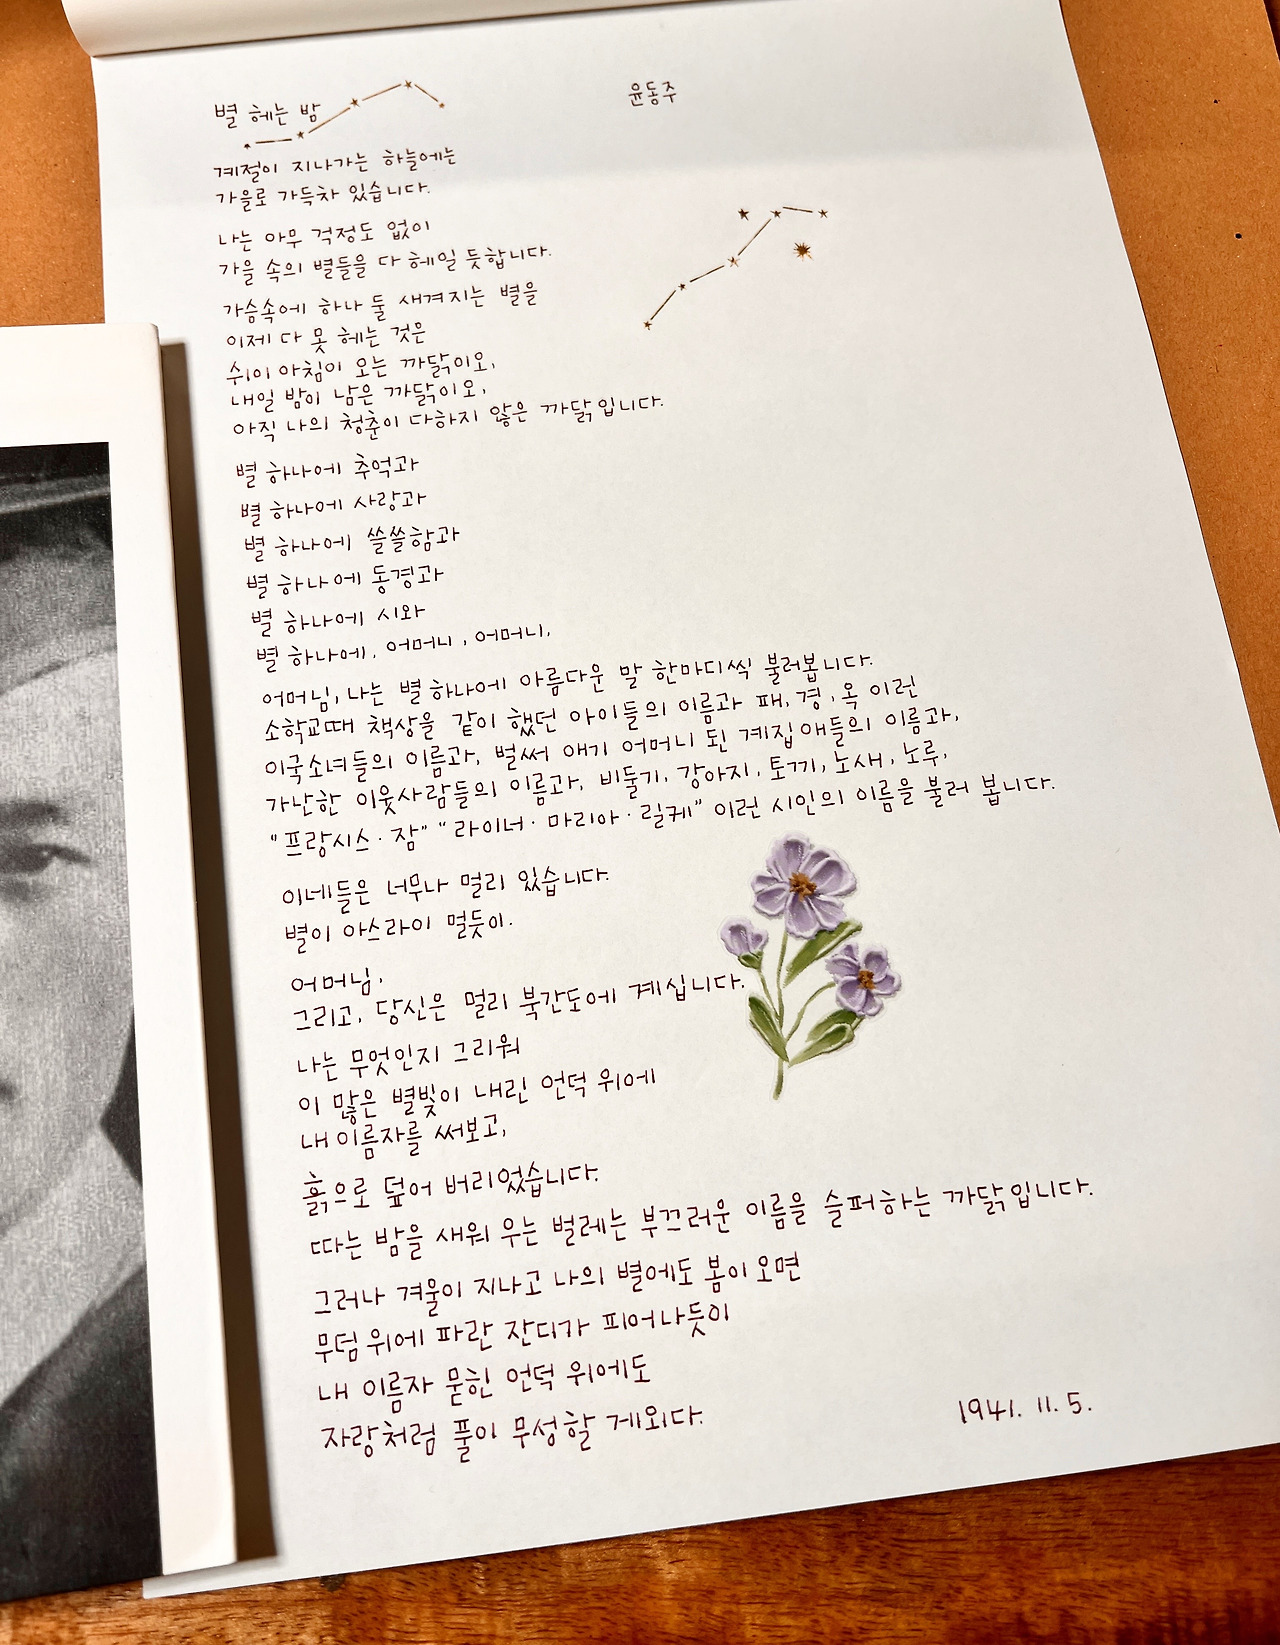 별 헤는 밤
윤동주
계절이 지나가는 하늘에는
가을로 가득차 있습니다.
나는 아무 걱정도 없이
가을 속의 별들을 다 헤일 듯합니다.
가슴속에 하나 둘 새겨지는 별을
이제 다 못 헤는 것은
쉬이 아침이 오는 까닭이오,
내일 밤이 남은 까닭이오,
아직 나의 청춘이 다하지 않은 까닭입니다.
별 하나에 추억과
별 하나에 사랑과
별 하나에 쓸쓸함과
별 하나에 동경과
별 하나에 시와
별 하나에, 어머니, 어머니,
어머님, 나는 별 하나에 아름다운 말 한마디씩 불러봅니다.
소학교때 책상을 같이 했던 아이들의 이름과 패, 경, 옥 이런
이국소녀들의 이름과, 벌써 애기 어머니 된 계집애들의 이름과,
가난한 이웃사람들의 이름과, 비둘기, 강아지, 토끼, 노새, 노루,
"프랑시스·잠" "라이너·마리아·릴케" 이런 시인의 이름을 불러 봅니다.
이네들은 너무나 멀리 있습니다.
별이 아스라이 멀듯이.
어머님,
그리고, 당신은 멀리 북간도에 계십니다.
나는 무엇인지 그리워
이 많은 별빛이 내린 언덕 위에
내 이름자를 써보고,
흙으로 덮어 버리었습니다.
따는 밤을 새워 우는 벌레는 부끄러운 이름을 슬퍼하는 까닭입니다.
그러나 겨울이 지나고 나의 별에도 봄이 오면
무덤 위에 파란 잔디가 피어나듯이
내 이름자 묻힌 언덕 위에도
자랑처럼 풀이 무성할 게외다.
1941. 11. 5.